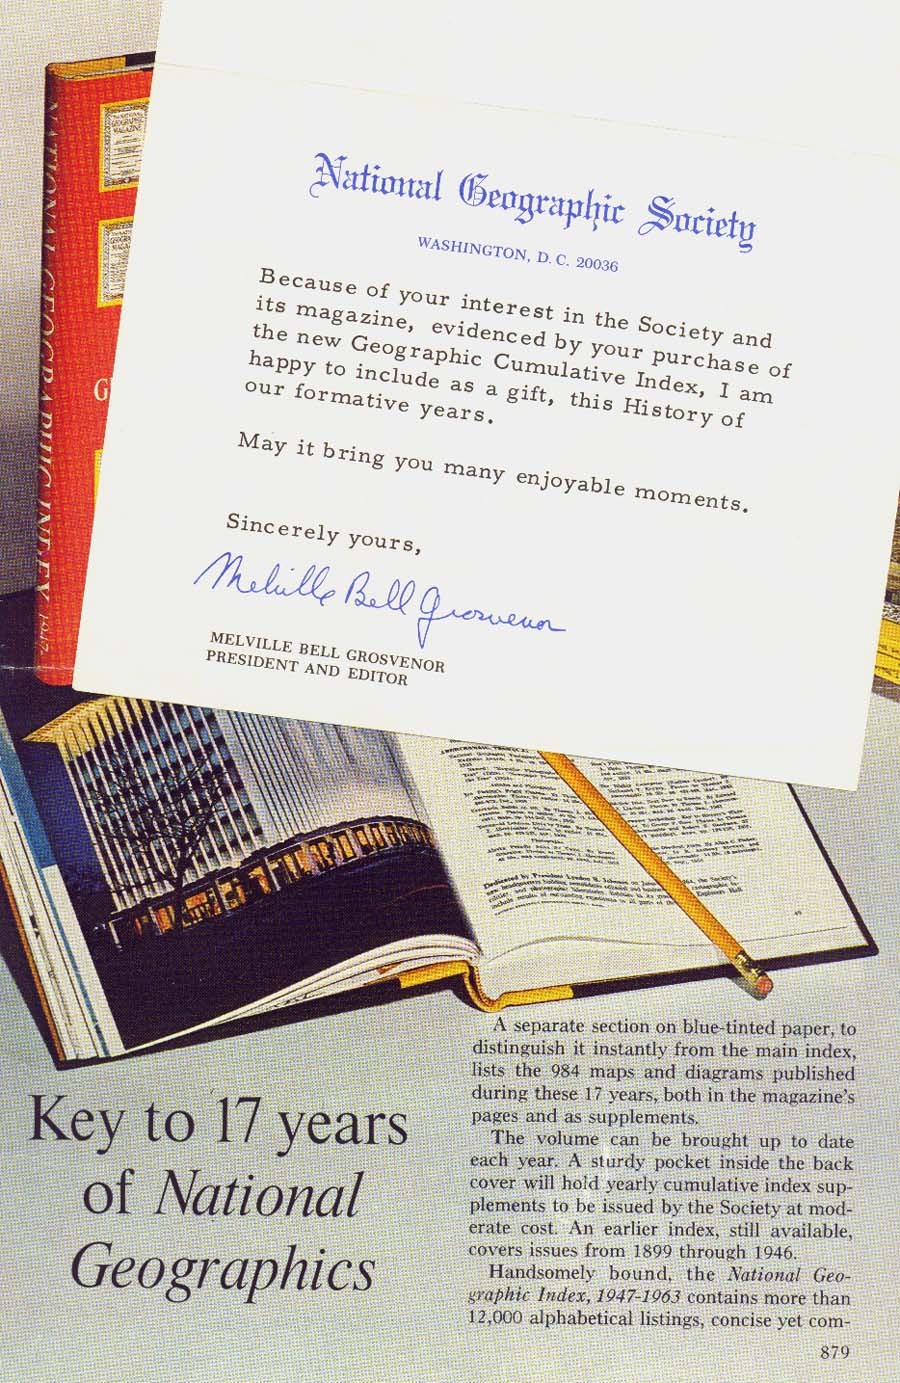 National Geographic Society
WASHINGTON, D. C. 20036
Because of your interest in the Society and
its magazine, evidenced by your purchase of
the new Geographic Cumulative Index, I am
happy to include as a gift, this History of
our formative years.
May it bring you many enjoyable moments.
Sincerely yours,
Melville Bell Grosvenor
MELVILLE BELL GROSVENOR
PRESIDENT AND EDITOR
NATIONAL GEOGRAPHIC INDEX 1947-
G
Key to 17 years
of National
Geographics
A separate section on blue-tinted paper, to
distinguish it instantly from the main index,
lists the 984 maps and diagrams published
during these 17 years, both in the magazine's
pages and as supplements.
The volume can be brought up to date
each year. A sturdy pocket inside the back
cover will hold yearly cumulative index sup-
plements to be issued by the Society at mod-
erate cost. An earlier index, still available,
covers issues from 1899 through 1946.
Handsomely bound, the National Geo-
graphic Index, 1947-1963 contains more than
12,000 alphabetical listings, concise yet com-
879